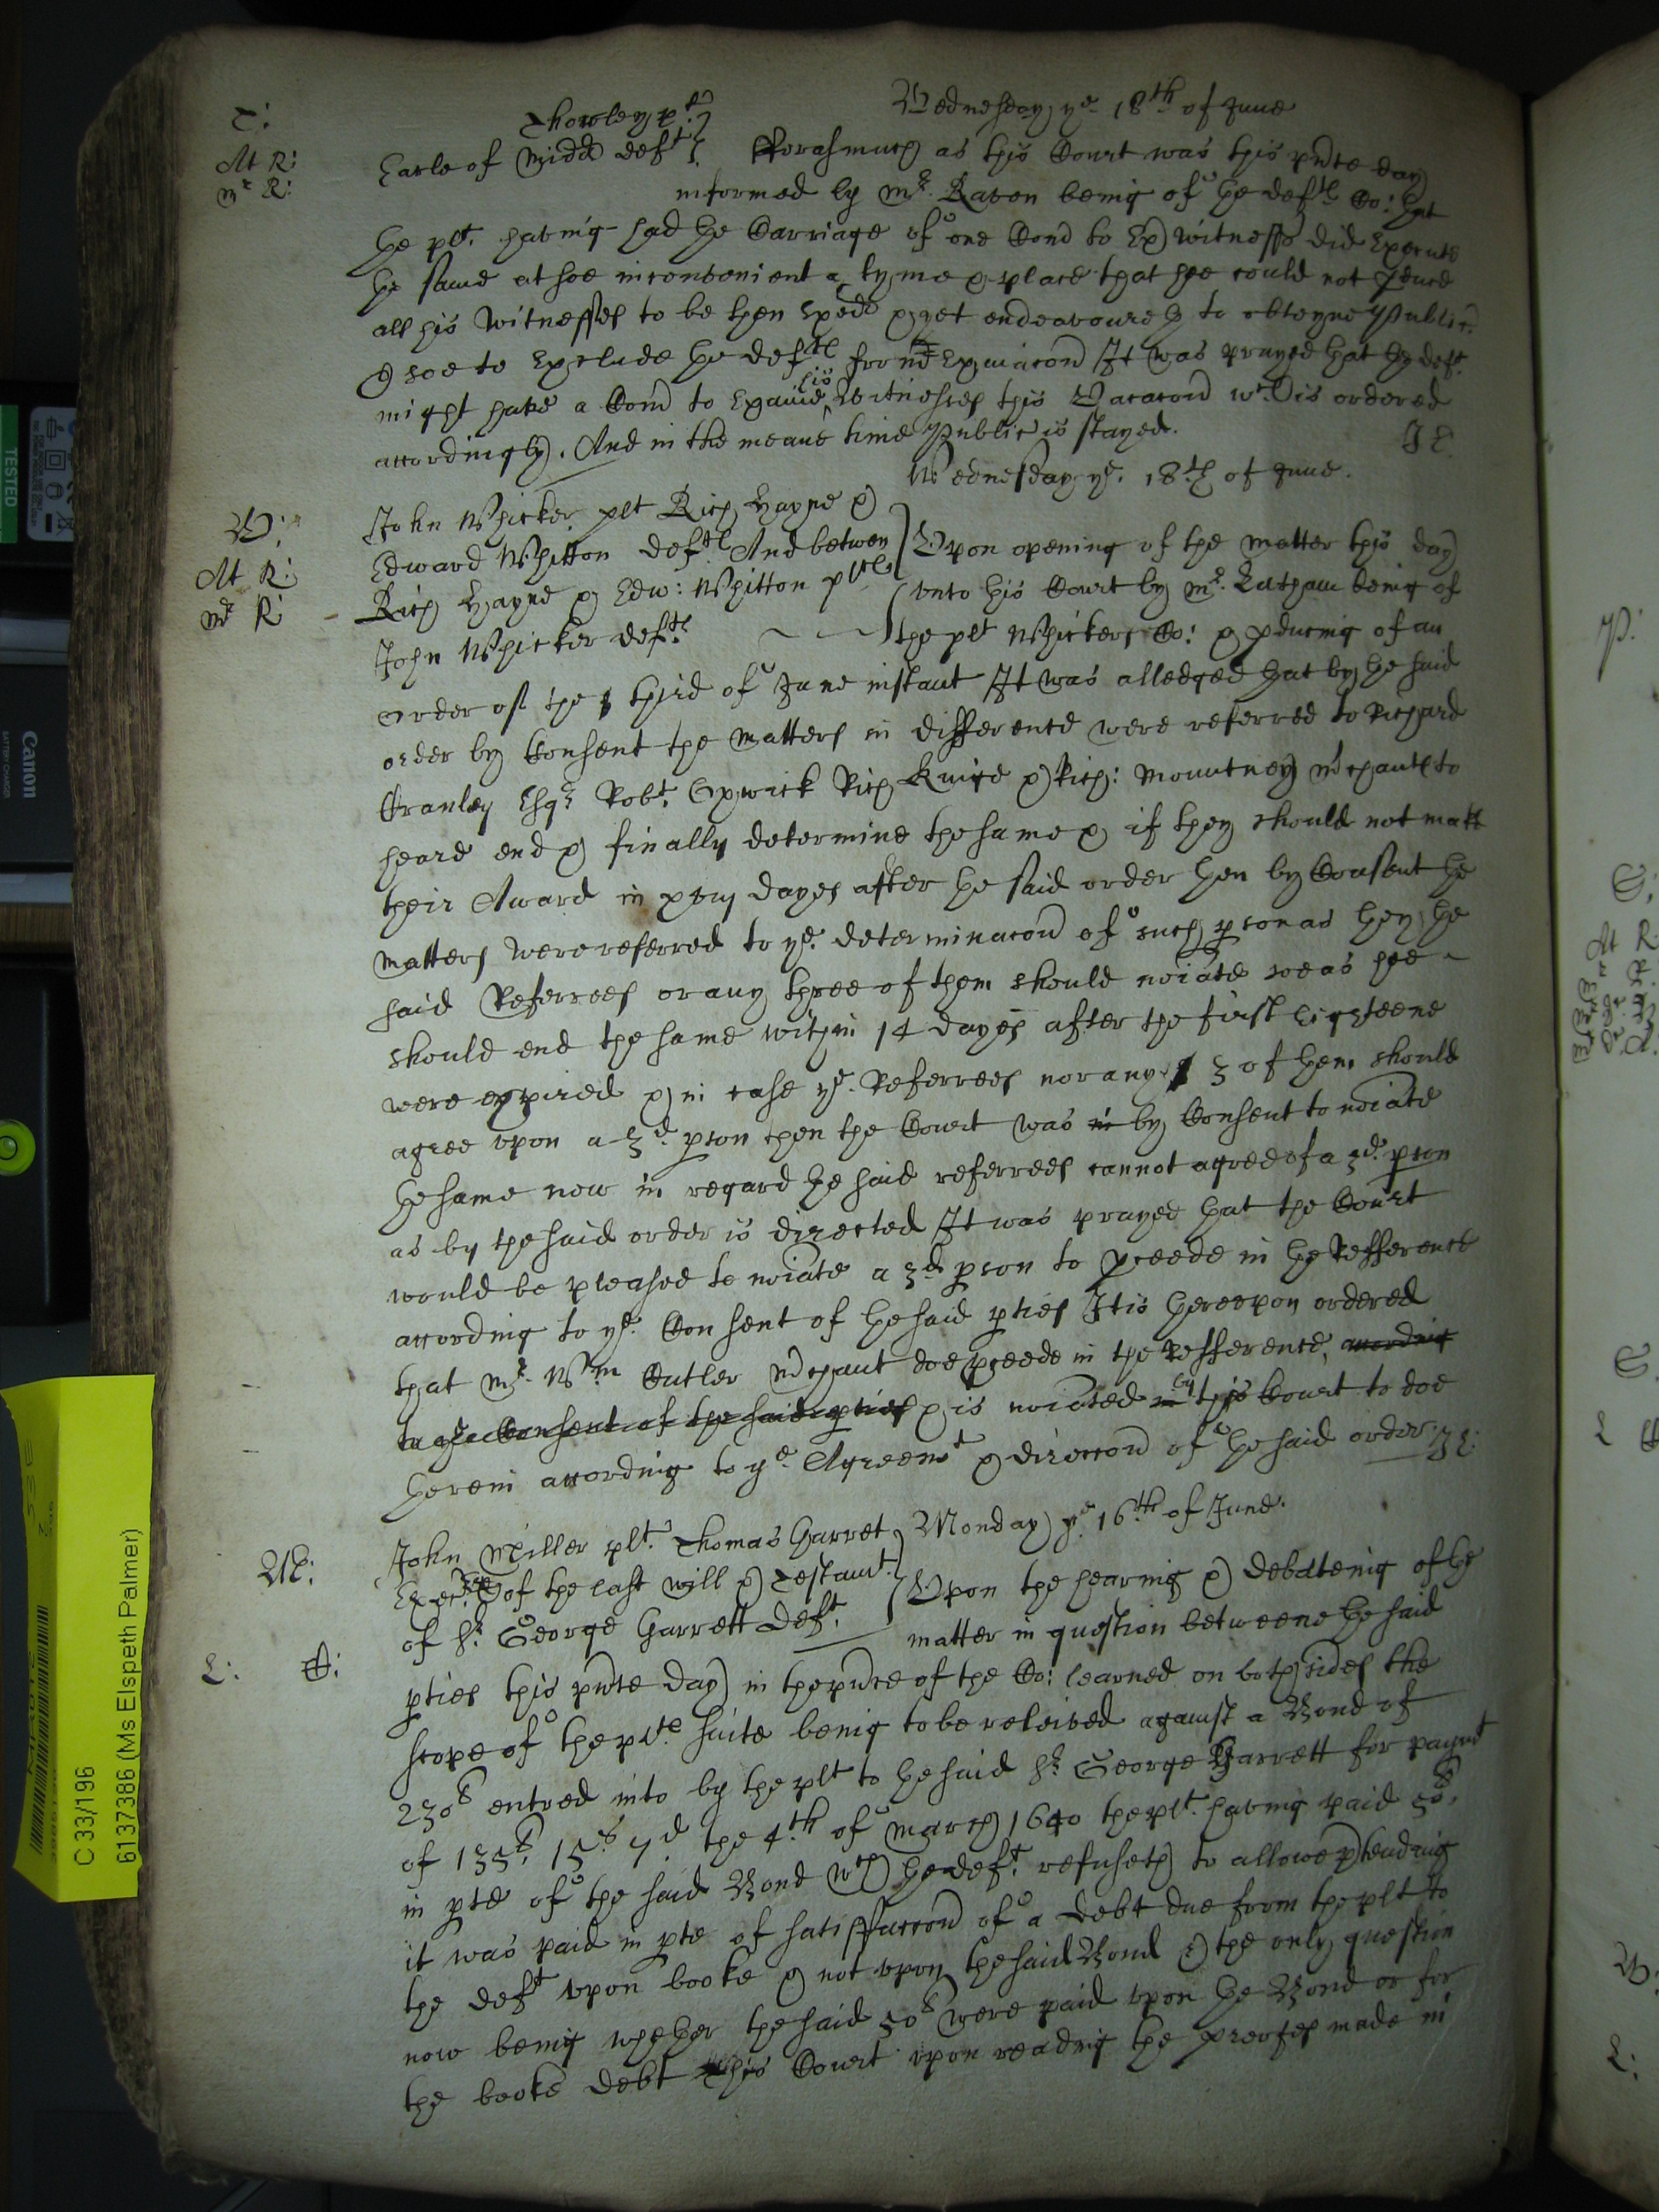 Wednesday ye 18th of June
T:
Thorley plt
At R:
Earle of Midd deft
Forasmuch as this Court was this pnte day
Mr R:
informed by Mr. Raven being of the defts Co: that
the plt. having had the Carriage of one Comn to Ex witnesses did Execute
the same at soe inconvenient a tyme & place that hee could not pduce
all his Witnesses to be then Exed & yet endeavoureth to obteyne Publicn
& soe to Exclude the deft from Exaiacon It was prayed that the deft.
might have a Comn to Exaine his Witnesses this Vacacon wch is ordered
accordingly. And in the meane time Public is stayed.
J E
Wednesday ye. 18th of June.
W:
John Whicker plt Rich Hayne &
At R:
Edward Whitton defts And betwen
Upon opening of the matter this day
Mr R:
Rich Hayne & Edw: Whitton plts
unto this Court by Mr. Latham being of
John Whicker deft.
the plt Whickers Co: & pducing of an
order of the third of June instant It was alledged that by the said
order by Consent the Matters in difference were referred to Richard
Cranley Esqr Robt. Oxwick Rich Kuige & Rich: Mountney Mrchants to
heare end & finally determine the same & if they should not make
their Award in xviij dayes after the said order then by Consent the
matters were referred to ye. determinacon of such pson as they the
said Referrees or any three of them should noiate soe as hee
should end the same within 14 dayes after the first Eighteene
were expired & in case ye. Referrees nor any 3 of them should
agree upon a 3d. pson then the Court was in by Consent to noiate
the same now in regard the said referrees cannot agree of a 3d. pson
as by the said order is directed It was prayed that the Court
would be pleased to noiate a 3d pson to pceede in the Refference
according to ye. Consent of the said pties It is thereupon ordered
that Mr. Wm Cutler Mrchant doe pceede in the Refference, according
to ye Consent of the said pties & is noiated in by this Court to doe
therein according to ye. Agreemt & direccon of the said order.
J E:
M:
John Miller plt. Thomas Garret
Monday ye. 16th of June.
Execr of the last will & Testamt.
Upon the hearing & debateing of the
of Sr. George Garrett deft.
matter in question betweene the said
L: C:
pties this pnte day in the pnce of the Co: learned on both sides the
scope of the plts suite being to be releived against a Bond of
230l entred into by the plt to the said Sr. George Garrett for paymt
of 135l. 15s 7d. the 4th of March 1640 the plt. having paid 50l.
in pte of the said Bond wch the deft. refuseth to allowe ptending
it was paid in pte of satisfaccon of a debt due from the plt to
the deft upon booke & not upon the said Bond & the only question
now being whether the said 50l were paid upon the Bond or for
the booke debt This Court upon reading the proofes made in
C 33/196
6137386 (Ms Elspeth Palmer)
TESTED
Canon
BATTERY CHARGER
P:
S:
At R